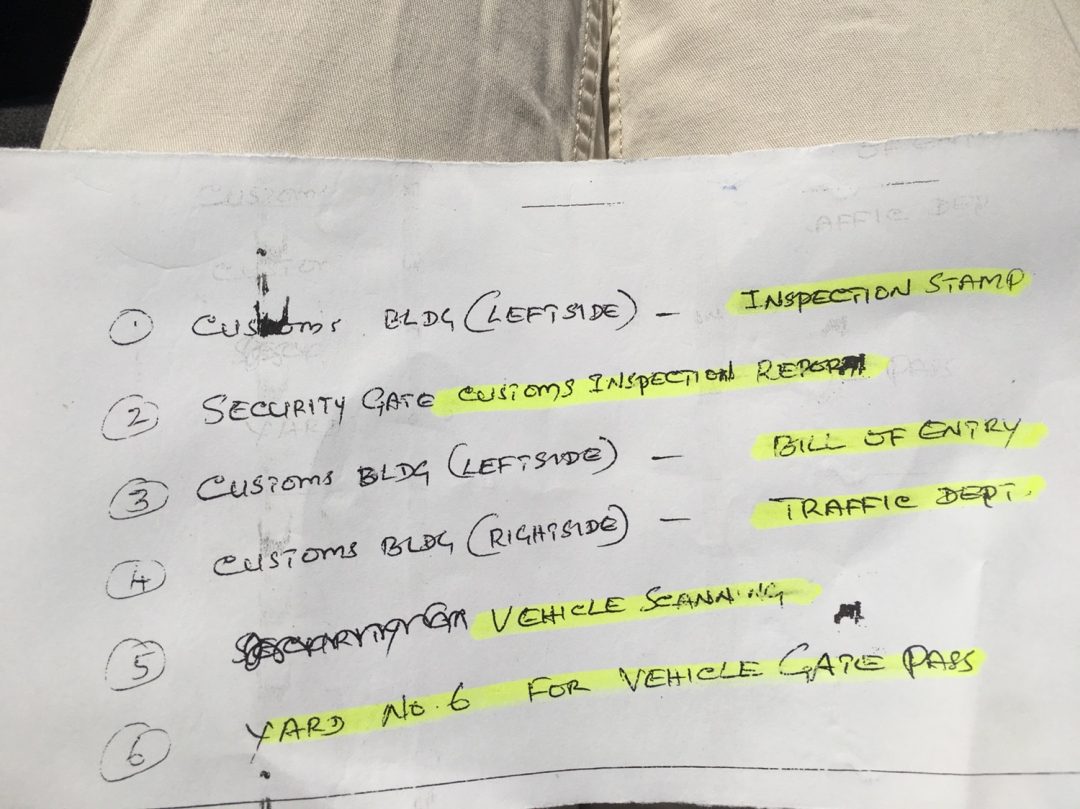 ① CUSTOMS BLDG (LEFTSIDE) — INSPECTION STAMP
② SECURITY GATE CUSTOMS INSPECTION REPORT
③ CUSTOMS BLDG (LEFTSIDE) — BILL OF ENTRY
④ CUSTOMS BLDG (RIGHTSIDE) — TRAFFIC DEPT.
⑤ VEHICLE SCANNING
⑥ YARD NO. 6 FOR VEHICLE GATE PASS